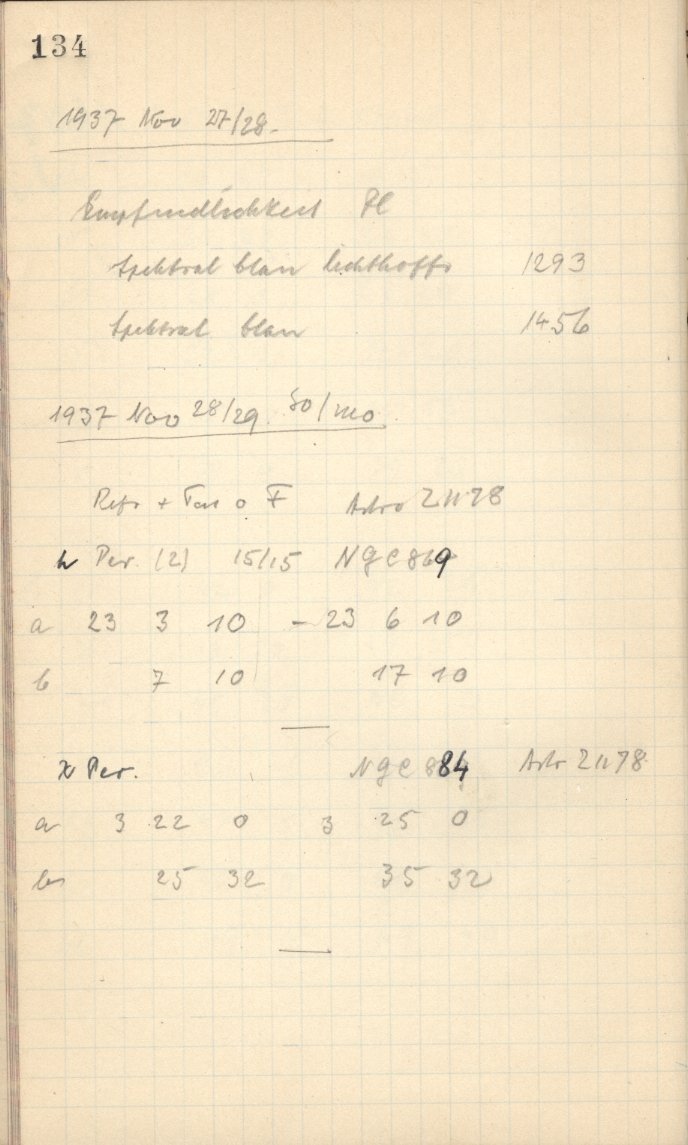 134
1937 Nov 27/28.
Empfindlichkeit Pl
Spektral blau lichthoffr 1293
Spektral blau 1456
1937 Nov 28/29. So/Mo
Refr + Tar o F Astro
h Per. (2) 15/15 NGC 869
a 23 3 10 – 23 6 10
b 7 10 17 10
χ Per. NGC 884 Astr
a 3 22 0 3 25 0
b 25 32 35 32